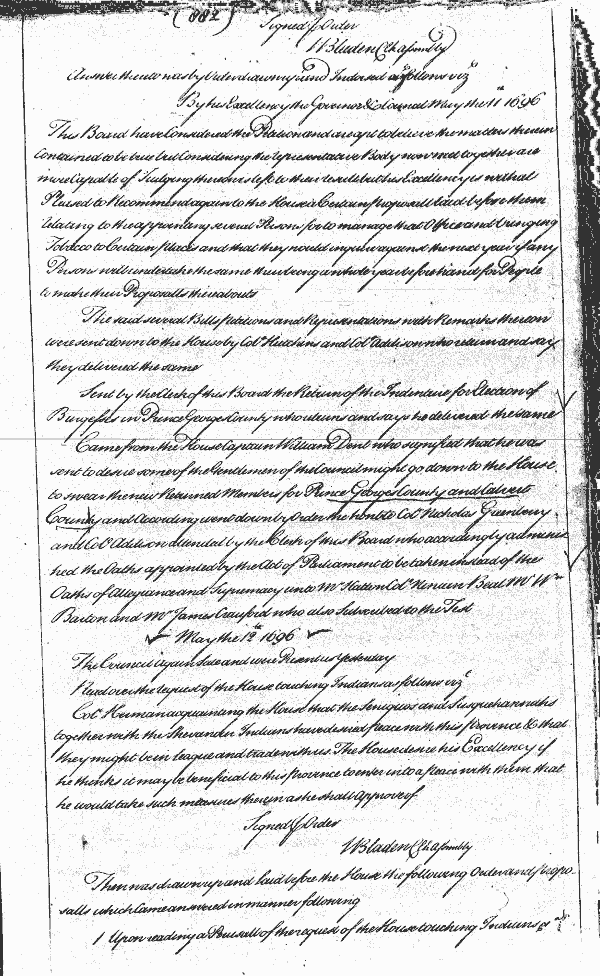 (882)
Signed p Order
WBladen Cl. Assembly
Answer thereto was by Order drawn up and Indorsed as follows viz.t
By his Excellency the Governor & Councel May the 11th 1696
This Board have Considered the Petition and are apt to believe the matters therein
contained to be true but Considering the representative Body now mett together are
more Capable of Judging thereon is left to their result but his Excellency is withal
Pleased to Recommend again to the House a Certain proposall laid before them
relating to the appointing several Persons for to manage that Office and bringing
Tobacco to Certain places and that they would inquire against the next year if any
Persons will undertake the same there being a whole year before hand for People
to make their Proposalls thereabouts
The said several Bills Petitions and Representations with Remarks thereon
were sent down to the House by Colo. Hutchins and Colo. Addison who return and say
they delivered the same
Sent by the Clerk of this Board the Return of the Indenture for Election of
Burgesses in Prince Georges County who returns and says he delivered the same
Came from the House Captain William Dent who signified that he was
sent to desire some of the Gentlemen of the Council might go down to the House
to swear the new Returned Members for Prince Georges County and Calvert
County and According went down by Order the honble Colo. Nicholas Greenbery
and Colo. Addison attended by the Clerk of this Board who accordingly adminis
tred the Oaths appointed by the Act of Parliament to be taken instead of the
Oaths of Allegiance and Supremacy unto Mr. Hatton Colo. Ninian Beal Mr. Wm.
Barton and Mr. James Crauford who also Subscribed to the Test
May the 12th 1696
The Council again sate and were Present as yesterday
Read over the request of the House touching Indians as follows viz.t
Colo. Herman acquainting the House that the Seniquos and Susquehannahs
together with the Shevanor Indians have desired peace with this province & that
they might be in league and trade with us. The House desire his Excellency if
he thinks it may be beneficial to this province to enter into a peace with them that
he would take such measures therein as he shall approve of
Signed p Order
WBladen Cl. Assembly
Then was drawn up and laid before the House the following Orders and propo-
salls which Came answered in manner following
1 Upon reading a Perusall of the request of the House touching Indians